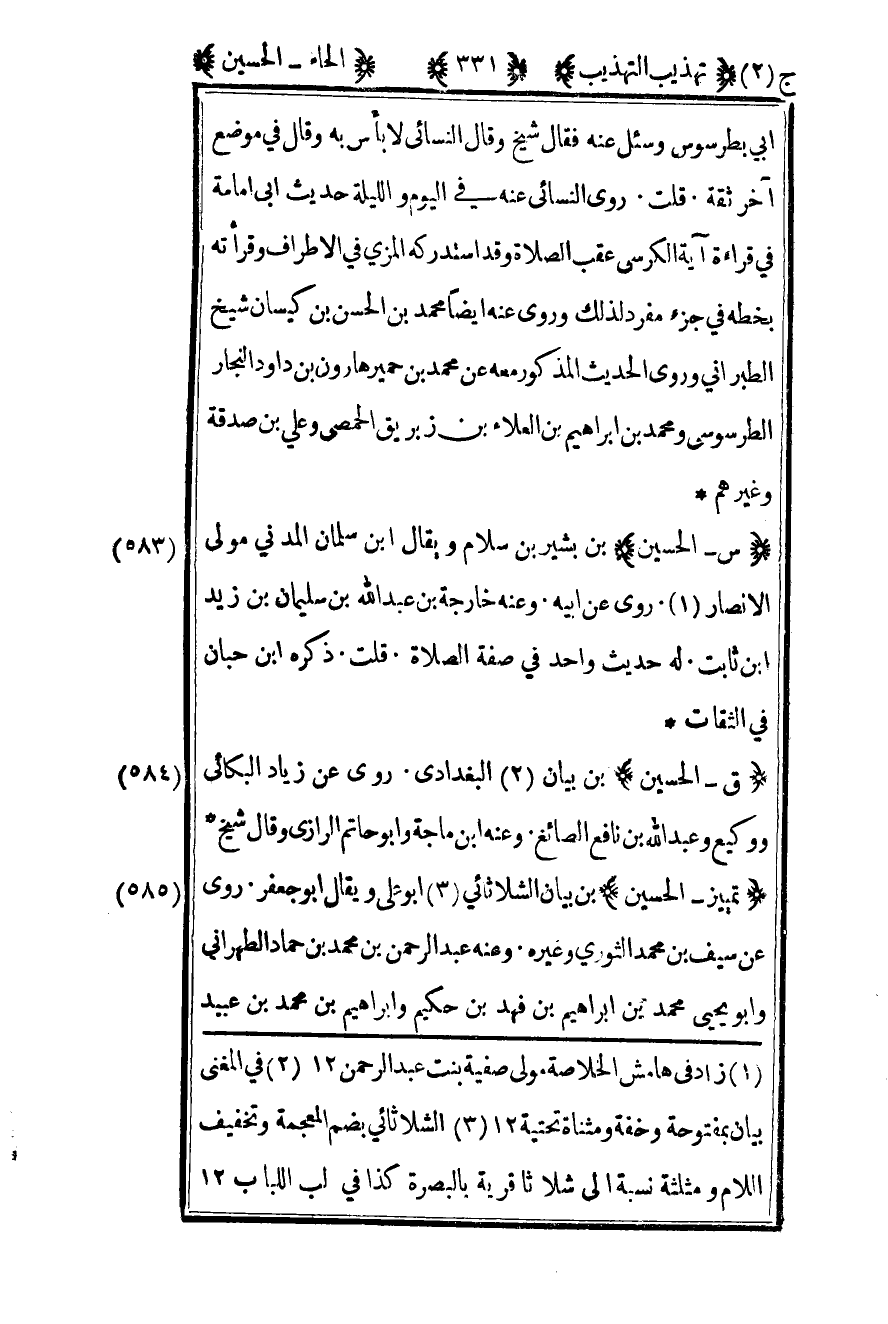 ج (٢) ﴿ تهذيب التهذيب ﴾ ﴿ ٣٣١ ﴾ ﴿ الحاء ــ الحسين ﴾
ابي بطرسوس وسئل عنه فقال شيخ وقال النسائى لا بأس به وقال في موضع
آخر ثقة ٠ قلت ٠ روى النسائى عنه في اليوم و الليلة حديث ابى امامة
في قراءة آية الكرسى عقب الصلاة وقد استدركه المزي في الاطراف وقرأته
بخطه في جزء مفرد لذلك وروى عنه ايضاً محمد بن الحسن بن كيسان شيخ
الطبراني وروى الحديث المذكور معه عن محمد بن حمير هارون بن داود النجار
الطرسوسى ومحمد بن ابراهيم بن العلاء بن زبريق الحمصى وعلي بن صدقة
وغيرهم *
﴿ س ــ الحسين ﴾ بن بشير بن سلام و يقال ابن سلمان المدني مولى (٥٨٣)
الانصار (١) ٠ روى عن ابيه ٠ وعنه خارجة بن عبدالله بن سليمان بن زيد
ابن ثابت ٠ له حديث واحد في صفة الصلاة ٠ قلت ٠ ذكره ابن حبان
في الثقات *
﴿ ق ــ الحسين ﴾ بن بيان (٢) البغدادى ٠ روى عن زياد البكائى (٥٨٤)
ووكيع وعبدالله بن نافع الصائغ ٠ وعنه ابن ماجة وابوحاتم الرازى وقال شيخ *
﴿ تمييز ــ الحسين ﴾ بن بيان الشلاثائي (٣) ابوعلى ويقال ابوجعفر ٠ روى (٥٨٥)
عن سيف بن محمد الثوري وغيره ٠ وعنه عبدالرحمن بن محمد بن حماد الطهراني
وابو يحيى محمد بن ابراهيم بن فهد بن حكيم وابراهيم بن محمد بن عبيد
(١) زاد فى هامش الخلاصة مولى صفية بنت عبدالرحمن ١٢ (٢) في المغنى
بيان بمفتوحة وخفة ومثناة تحتية ١٢ (٣) الشلاثائي بضم المعجمة وتخفيف
اللام و مثلثة نسبة الى شلاثا قرية بالبصرة كذا في لب اللباب ١٢